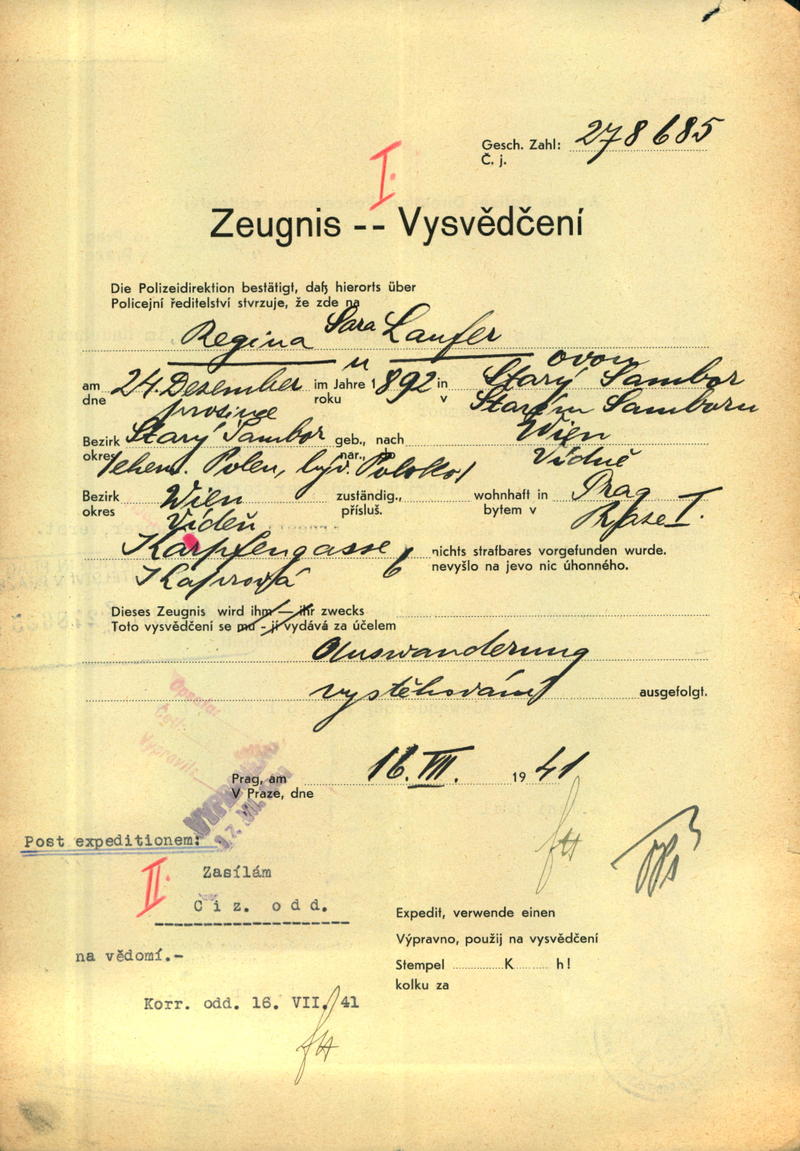 Gesch. Zahl: 278685
Č. j.
I.
Zeugnis -- Vysvědčení
Die Polizeidirektion bestätigt, daß hierorts über
Policejní ředitelství stvrzuje, že zde na
Regina Sara Laufer
ovou
am 24. Dezember im Jahre 1892 in Starý Sambor
dne prosince roku v Starém Samboru
Bezirk Starý Sambor geb., nach Wien
okres nar., Vídně
/ehem. Polen, býv. Polsko/
Bezirk Wien zuständig., wohnhaft in Prag
okres Vídeň přísluš. bytem v Praze I.
Karpfengasse 6 nichts strafbares vorgefunden wurde.
Kaprová nevyšlo na jevo nic úhonného.
Dieses Zeugnis wird ihm — ihr zwecks
Toto vysvědčení se mu - jí vydává za účelem
Auswanderung
vystěhování ausgefolgt.
Opsáno:
Četl:
Vypravil:
VYPRAVENO
17. VII. 1941
Prag, am 16. VII. 1941
V Praze, dne
Post expeditionem:
II.
Zasílám
Ciz. odd.
na vědomí.-
Korr. odd. 16. VII. 41
Expedit, verwende einen
Výpravno, použij na vysvědčení
Stempel K h!
kolku za